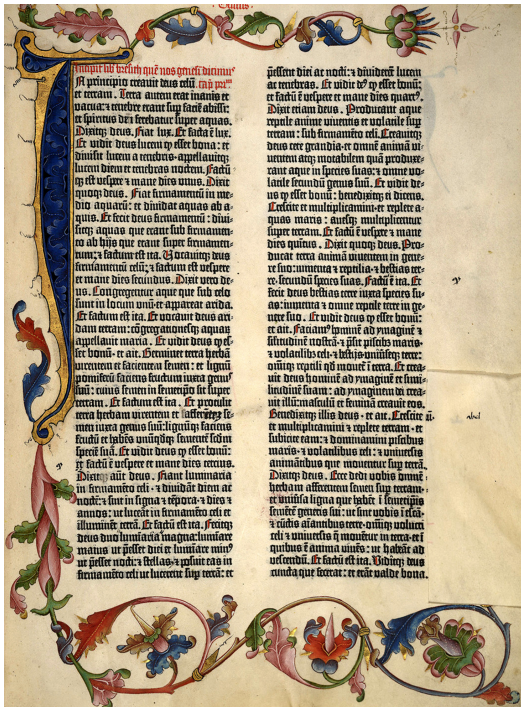 Incipit liber bresith quē nos genesim dicimus
In principio creauit deus celū
et terram. Terra autem erat inanis et
vacua: et tenebre erant sup faciē abissi:
et spiritus dn̄i ferebatur super aquas.
Dixitq; deus. Fiat lux. Et facta ē lux.
Et vidit deus lucem q esset bona: et
diuisit lucem a tenebris: appellauitq;
lucem diem et tenebras noctem. Factū
q; est vespere et mane dies unus. Dixit
quoq; deus. Fiat firmamentū in me-
dio aquarū: et diuidat aquas ab a-
quis. Et fecit deus firmamentū: diui-
sitq; aquas que erant sub firmamen-
to ab hijs que erant super firmamen-
tum: et factum est ita. Vocauitq; deus
firmamentū celū: et factum est vespere
et mane dies secundus. Dixit vero de-
us. Congregentur aque que sub celo
sunt in locum unū et appareat arida.
Et factum est ita. Et vocauit deus ari-
dam terram: cōgregationesq; aquarū
appellauit maria. Et vidit deus q es-
set bonū: et ait. Germinet terra herbā
virentem et facientem semen: et lignū
pomiferū faciens fructum iuxta genus
suū: cuius semen in semetipso sit super
terram. Et factum est ita. Et protulit
terra herbam virentem et afferētem se-
men iuxta genus suū: lignūq; faciens
fructū et habēs unūqdq; sementē scdm
speciē suā. Et vidit deus q esset bonū:
et factū ē vespere et mane dies tercius.
Dixitq; aūt deus. Fiant luminaria
in firmamēto celi: et diuidāt diem ac
noctē: et sint in signa et tēpora et dies et
annos: ut luceāt in firmamēto celi et
illuminēt terrā. Et factū est ita. Fecitq;
deus duo luminaria magna: luminare
maius ut pesset diei et luminare minus
ut pesset nocti: et stellas: et posuit eas in
firmamēto celi ut lucerent sup terrā: et
pessent diei ac nocti: et diuiderēt lucem
ac tenebras. Et vidit deus q esset bonū:
et factū ē vespere et mane dies quartus.
Dixit etiam deus. Producant aque
reptile anime viuentis et volatile sup
terram: sub firmamēto celi. Creauitq;
deus cete grandia: et omnē animā vi-
uentem atq; motabilem quā produxe-
rant aque in species suas: et omne vo-
latile secundū genus suū. Et vidit de-
us q esset bonū: benedixitq; ei dicens.
Crescite et multiplicamini: et replete a-
quas maris: auesq; multiplicentur
super terram. Et factū ē vespere et mane
dies quintus. Dixit quoq; deus. Pro-
ducat terra animā viuentem in gene-
re suo: iumenta et reptilia: et bestias ter-
re secundū species suas. Factū ē ita. Et
fecit deus bestias terre iuxta species su-
as: iumenta et omne reptile terre in ge-
nere suo. Et vidit deus q esset bonū:
et ait. Faciamus hominē ad ymaginē et
similitudinē nostrā: et psit piscibus maris:
et volatilibus celi et bestijs universeq; terre:
omniq; reptili qd mouet in terra. Et crea-
uit deus hominē ad ymaginē et simi-
litudinē suam: ad ymaginem dei crea-
uit illū: masculū et feminā creauit eos.
Benedixitq; illis deus et ait. Crescite
et multiplicamini et replete terram et
subicite eam: et dominamini piscibus
maris et volatilibus celi: et uniuersis
animātibus que mouentur sup terrā.
Dixitq; deus. Ecce dedi vobis omnē
herbam afferentem semen sup terram:
et uniuersa ligna que habēt in semetipsis
sementē generis sui: ut sint vobis in escā
et cūctis aīantibus terre: omniq; volucri
celi et uniuersis q mouetur in terra: et in
quibus ē anima viuēs: ut habeāt ad
vescendū. Et factū est ita. Viditq; deus
cuncta que fecerat: et erāt valde bona.